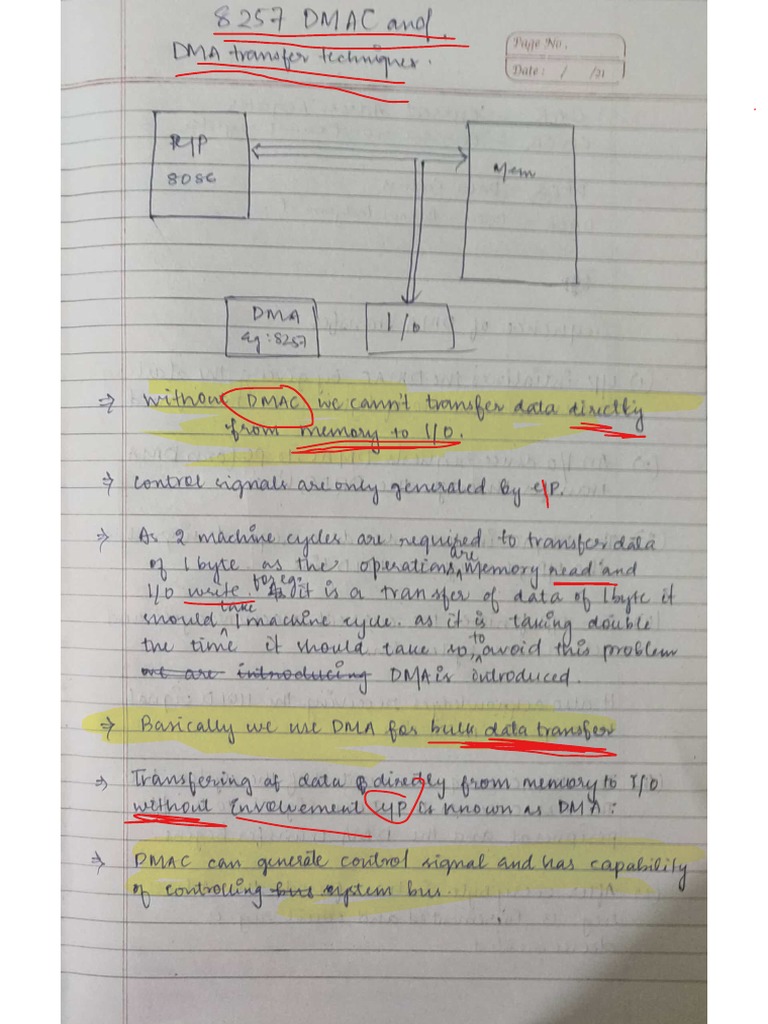 8257 DMAC and
DMA transfer techniques.
Page No.
Date: / /21
8086
Mem
DMA
Eg: 8257
I/O
⇒ Without DMAC we cann't transfer data directly
from memory to I/O.
⇒ Control signals are only generated by μP.
⇒ As 2 machine cycles are required to transfer data
of 1 byte as the operations are memory read and
I/O write. for eg: it is a transfer of data of 1 byte it
should take 1 machine cycle. as it is taking double
the time it should take so, to avoid this problem
we are introducing DMA is introduced.
⇒ Basically we use DMA for bulk data transfer
⇒ Transfering of data directly from memory to I/O
without Envolvement μP is known as DMA.
⇒ DMAC can generate control signal and has capability
of controlling bus system bus.